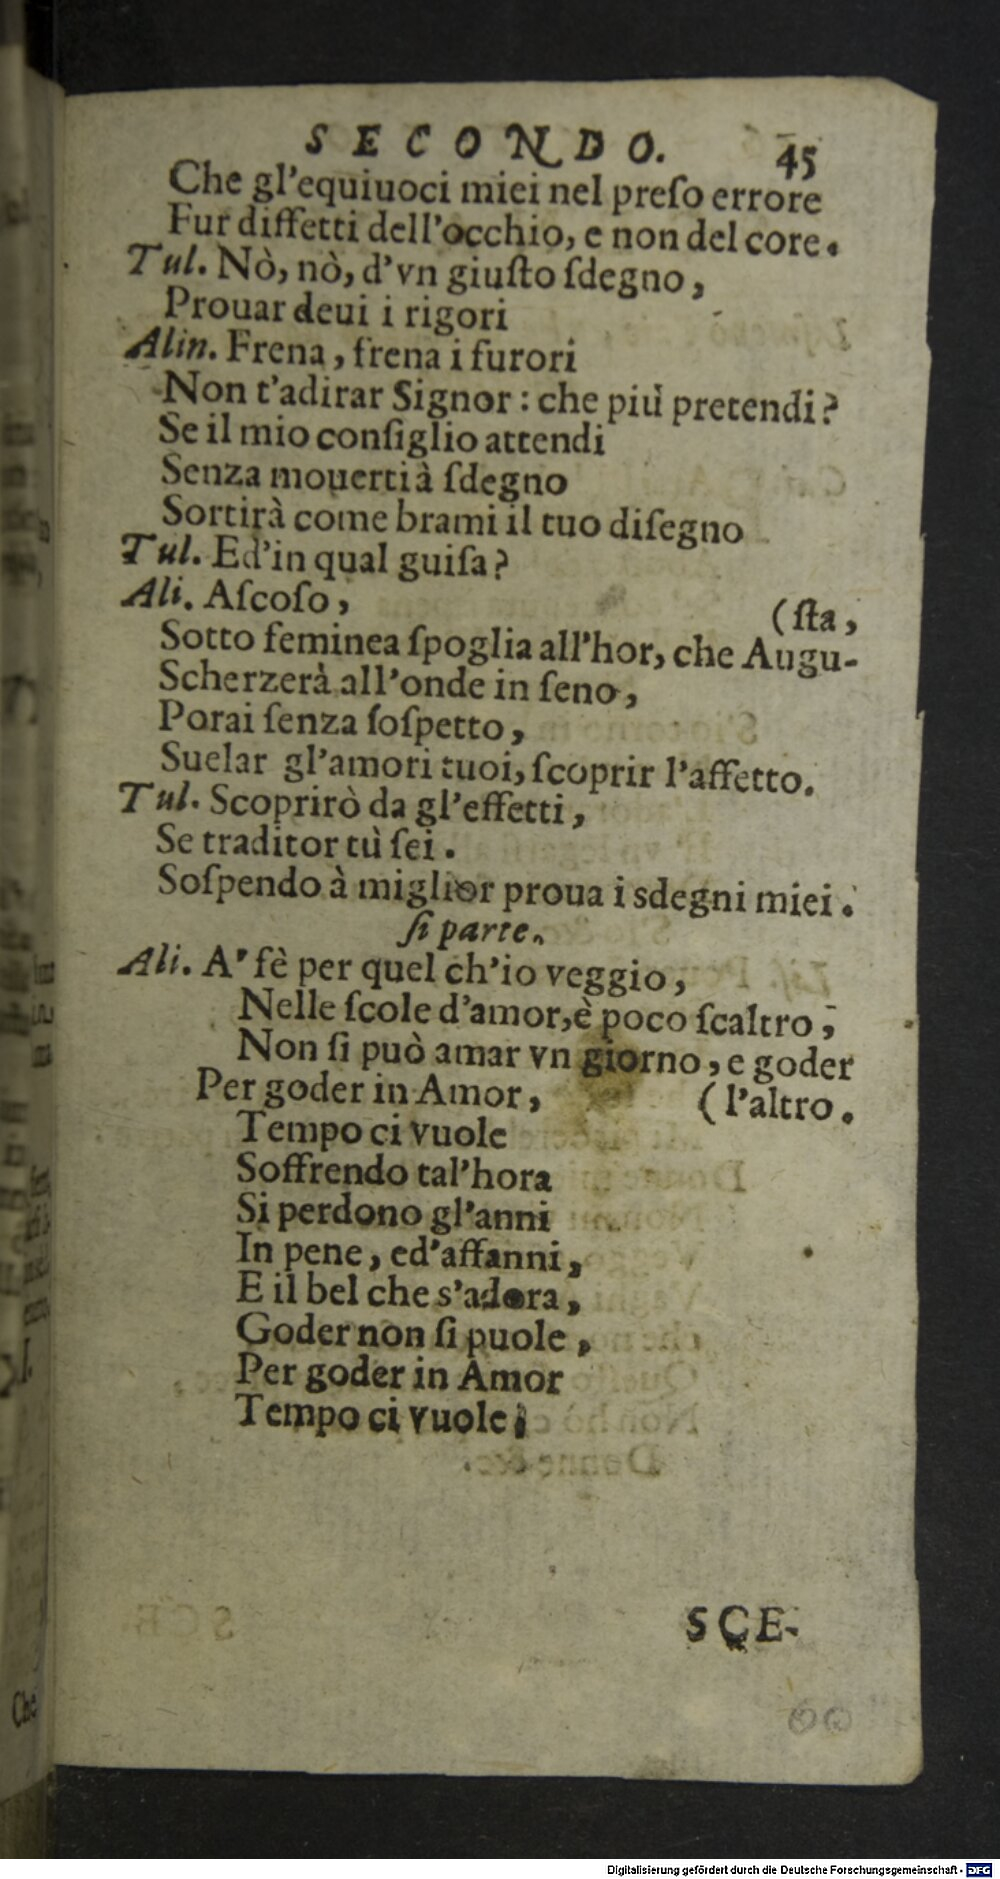 SECONDO. 45
Che gl'equiuoci miei nel preſo errore
Fur diffetti dell'occhio, e non del core.
Tul. Nò, nò, d'vn giuſto ſdegno,
Prouar deui i rigori
Alin. Frena, frena i furori
Non t'adirar Signor: che più pretendi?
Se il mio conſiglio attendi
Senza mouerti à ſdegno
Sortirà come brami il tuo diſegno
Tul. Ed'in qual guiſa?
Ali. Aſcoſo,
(ſta,
Sotto feminea ſpoglia all'hor, che Augu-
Scherzerà all'onde in ſeno,
Porai ſenza ſoſpetto,
Suelar gl'amori tuoi, ſcoprir l'affetto.
Tul. Scoprirò da gl'effetti,
Se traditor tù ſei.
Soſpendo à miglior proua i sdegni miei.
ſi parte.
Ali. A' fè per quel ch'io veggio,
Nelle ſcole d'amor, è poco ſcaltro,
Non ſi può amar vn giorno, e goder
Per goder in Amor, (l'altro.
Tempo ci vuole
Soffrendo tal'hora
Si perdono gl'anni
In pene, ed'affanni,
E il bel che s'adora,
Goder non ſi puole,
Per goder in Amor
Tempo ci vuole.
SCE-
Che
Digitalisierung gefördert durch die Deutsche Forschungsgemeinschaft - DFG